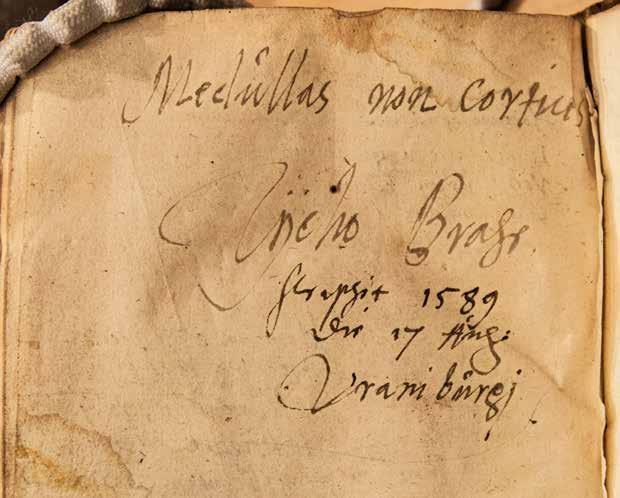 Medůllas non Cortices
Tÿcho Brahe
scrupsit 1589
Die 17 Aůg:
Vraniburgj